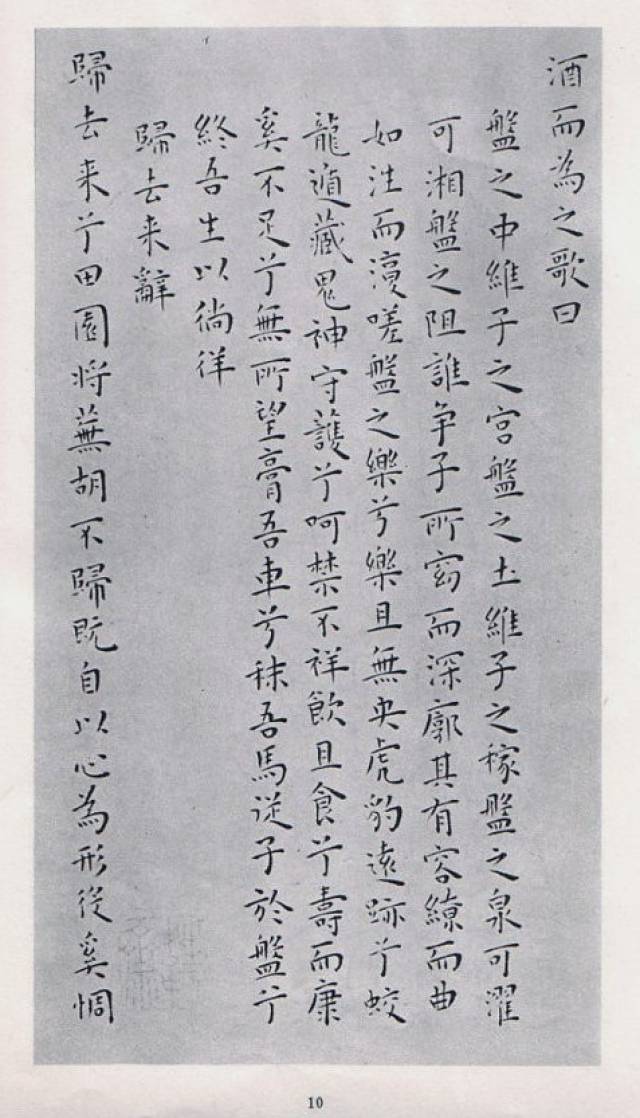 酒而為之歌曰
盤之中維子之宮盤之土維子之稼盤之泉可濯
可湘盤之阻誰争子所窈而深廓其有容繚而曲
如注而復嗟盤之樂兮樂且無央虎豹遠跡兮蛟
龍遁藏鬼神守護兮呵禁不祥飲且食兮壽而康
奚不足兮無所望膏吾車兮秣吾馬從子於盤兮
終吾生以徜徉
歸去来辭
歸去来兮田園将蕪胡不歸既自以心為形役奚惆
10